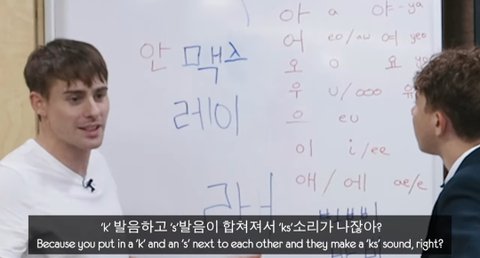 아 a 야 - ya
어 eo/au 여 yeo
안 맥스
오 o 요
레이
우 u/ooo 유
으 eu
이 i/ee
애/에 ae/e
'k' 발음하고 's'발음이 합쳐져서 'ks'소리가 나잖아?
Because you put in a 'k' and an 's' next to each other and they make a 'ks' sound, right?